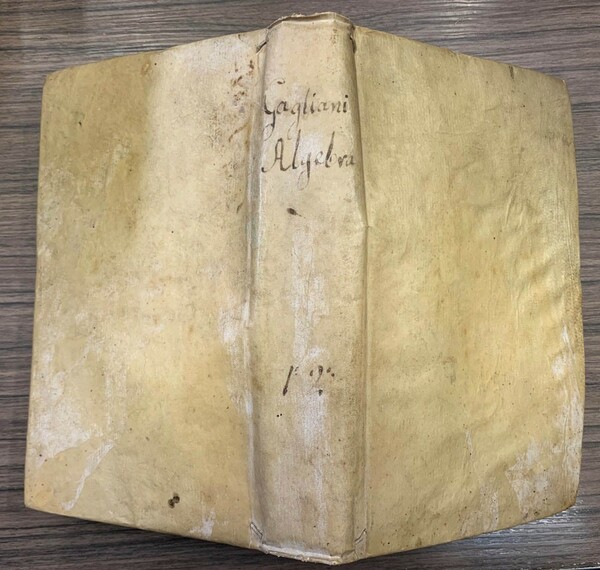 Gagliani
Algebra